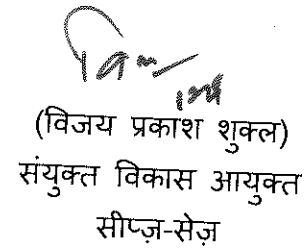 (विजय प्रकाश शुक्ल)
संयुक्त विकास आयुक्त
सीप्ज़-सेज़